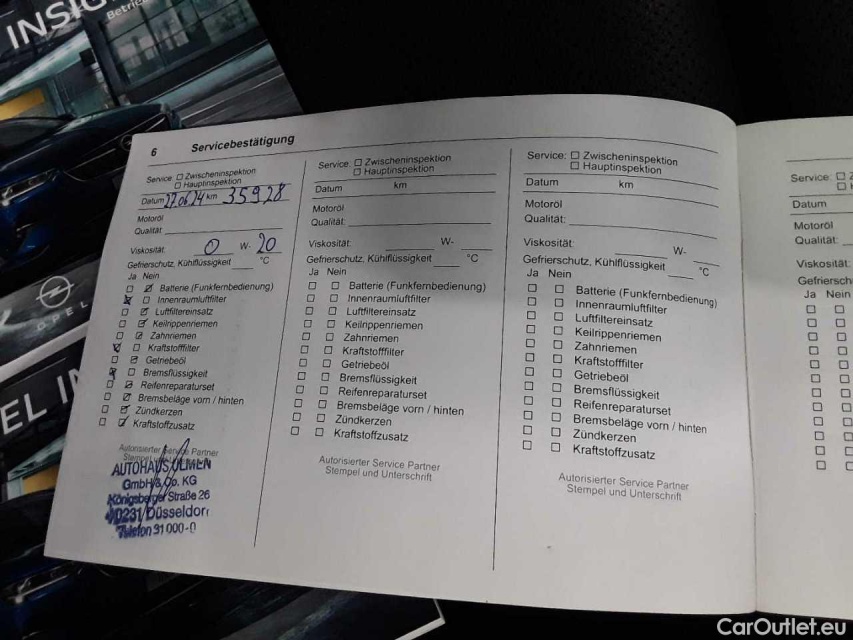 INSIG
Betrie
OPEL
EL IN
6 Servicebestätigung
Service: Zwischeninspektion
Hauptinspektion
Datum 27.06.24 km 35928
Motoröl
Qualität:
Viskosität: 0 W- 20
Gefrierschutz, Kühlflüssigkeit °C
Ja Nein
Batterie (Funkfernbedienung)
Innenraumluftfilter
Luftfiltereinsatz
Keilrippenriemen
Zahnriemen
Kraftstofffilter
Getriebeöl
Bremsflüssigkeit
Reifenreparaturset
Bremsbeläge vorn / hinten
Zündkerzen
Kraftstoffzusatz
Autorisierter Service Partner
Stempel und Unterschrift
AUTOHAUS ULMEN
GmbH & Co. KG
Königsberger Straße 26
40231 Düsseldorf
Telefon 31 000-0
Service: Zwischeninspektion
Hauptinspektion
Datum km
Motoröl
Qualität:
Viskosität: W-
Gefrierschutz, Kühlflüssigkeit °C
Ja Nein
Batterie (Funkfernbedienung)
Innenraumluftfilter
Luftfiltereinsatz
Keilrippenriemen
Zahnriemen
Kraftstofffilter
Getriebeöl
Bremsflüssigkeit
Reifenreparaturset
Bremsbeläge vorn / hinten
Zündkerzen
Kraftstoffzusatz
Autorisierter Service Partner
Stempel und Unterschrift
Service: Zwischeninspektion
Hauptinspektion
Datum km
Motoröl
Qualität:
Viskosität: W-
Gefrierschutz, Kühlflüssigkeit °C
Ja Nein
Batterie (Funkfernbedienung)
Innenraumluftfilter
Luftfiltereinsatz
Keilrippenriemen
Zahnriemen
Kraftstofffilter
Getriebeöl
Bremsflüssigkeit
Reifenreparaturset
Bremsbeläge vorn / hinten
Zündkerzen
Kraftstoffzusatz
Autorisierter Service Partner
Stempel und Unterschrift
Service: Z
H
Datum
Motoröl
Qualität:
Viskosität:
Gefriersch
Ja Nein
CarOutlet.eu